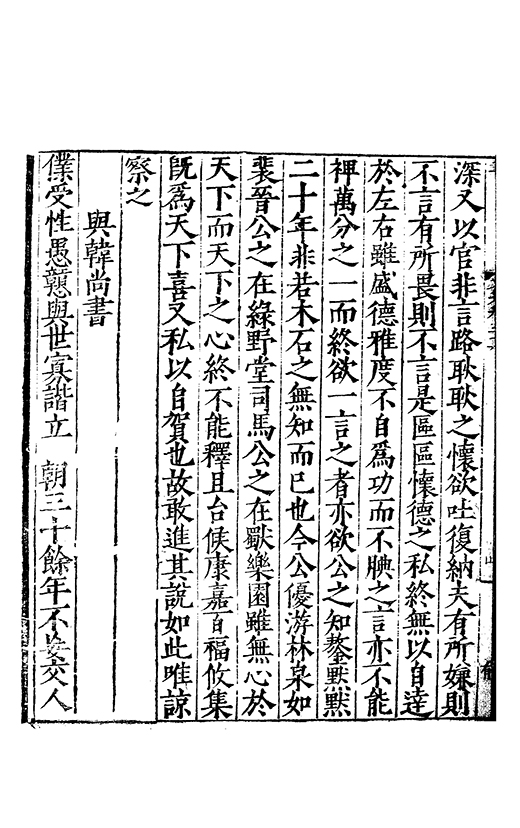 深又以官非言路耿耿之懷欲吐復納夫有所嫌則
不言有所畏則不言是區區懷德之私終無以自達
於左右雖盛德雅度不自爲功而不腆之言亦不能
裨萬分之一而終欲一言之者亦欲公之知鏊默默
二十年非若木石之無知而已也今公優游林泉如
裴晉公之在綠野堂司馬公之在獸樂園雖無心於
天下而天下之心終不能釋且台候康嘉百福攸集
旣爲天下喜又私以自賀也故敢進其說如此唯諒
察之
與韓尚書
僕受性愚戇與世寡諧立　朝三十餘年不妄交人